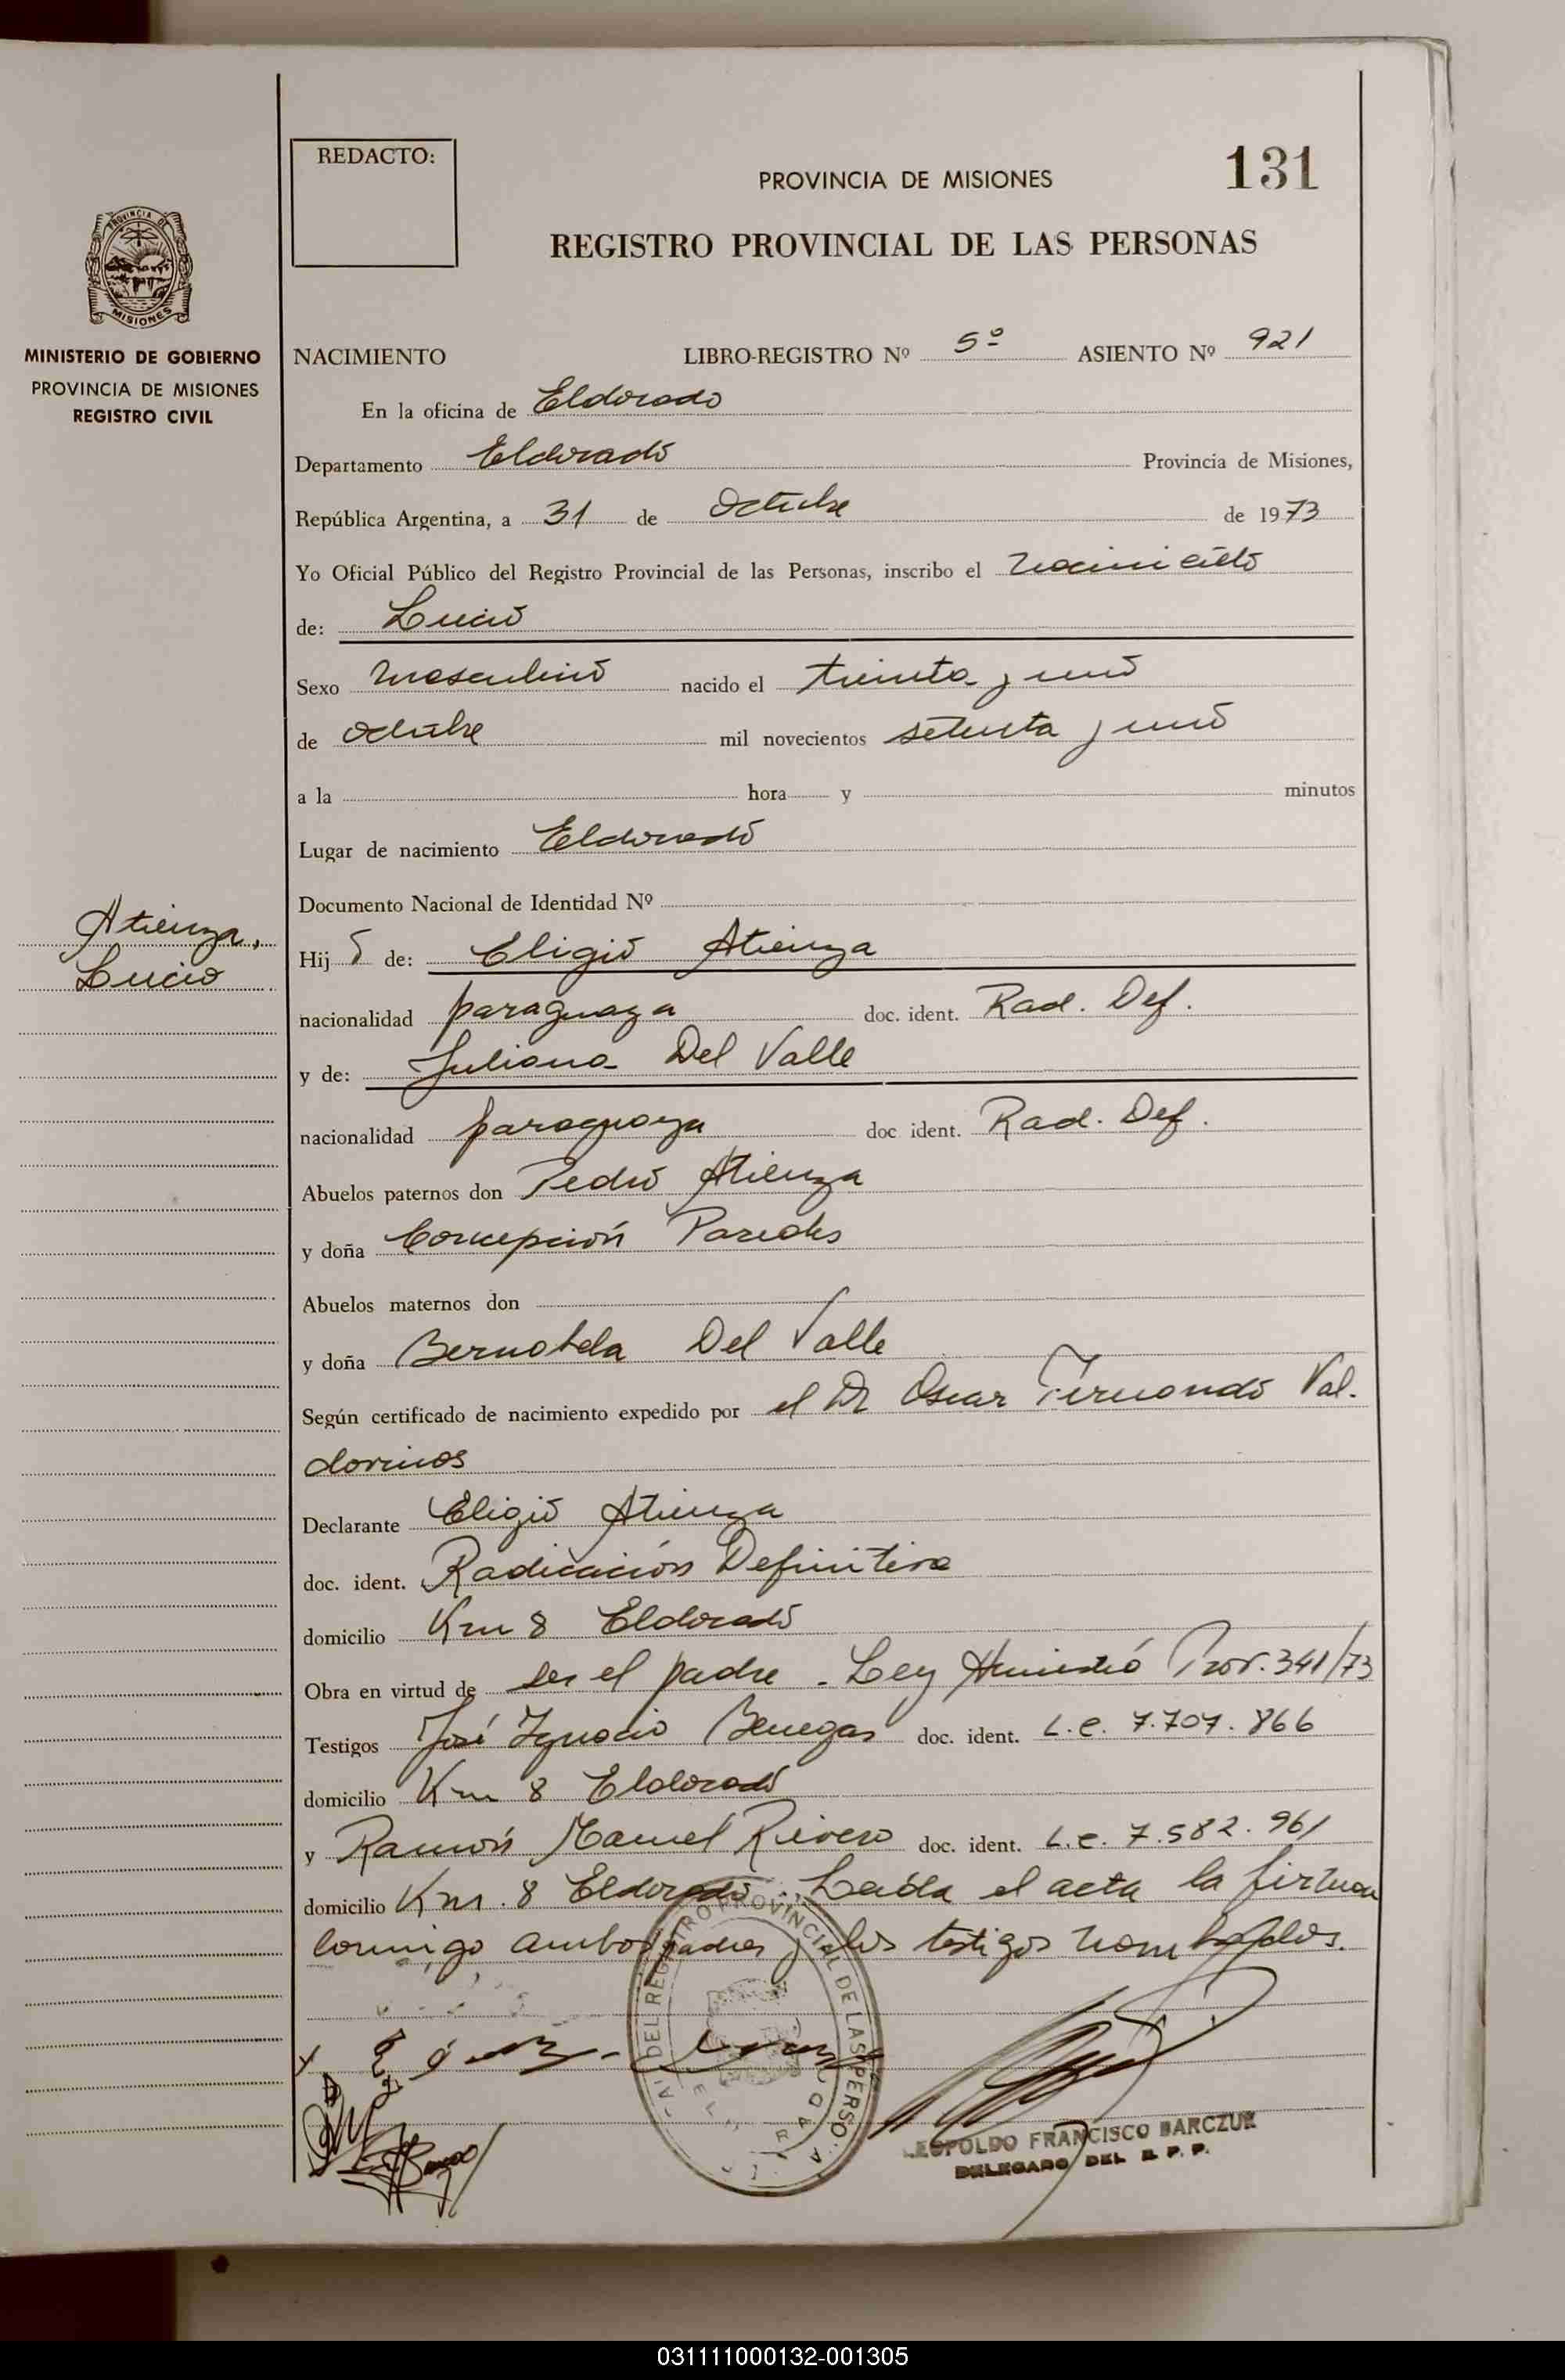 REDACTO:
PROVINCIA DE MISIONES
131
REGISTRO PROVINCIAL DE LAS PERSONAS
PROVINCIA DE
MISIONES
MINISTERIO DE GOBIERNO
PROVINCIA DE MISIONES
REGISTRO CIVIL
NACIMIENTO LIBRO-REGISTRO Nº 5º ASIENTO Nº 921
En la oficina de Eldorado
Departamento Eldorado Provincia de Misiones,
República Argentina, a 31 de Octubre de 1973
Yo Oficial Público del Registro Provincial de las Personas, inscribo el nacimiento
de: Lucio
Sexo masculino nacido el treinta y uno
de octubre mil novecientos setenta y uno
a la hora y minutos
Lugar de nacimiento Eldorado
Documento Nacional de Identidad Nº
Atienza,
Lucio
Hijo de: Eligio Atienza
nacionalidad paraguaya doc. ident. Rad. Def.
y de: Juliana Del Valle
nacionalidad paraguaya doc ident. Rad. Def.
Abuelos paternos don Pedro Atienza
y doña Concepción Paredes
Abuelos maternos don
y doña Bernabela Del Valle
Según certificado de nacimiento expedido por el Dr Oscar Fernando Val-
dovinos
Declarante Eligio Atienza
doc. ident. Radicación Definitiva
domicilio Km 8 Eldorado
Obra en virtud de ser el padre - Ley Amnistió Prov. 341/73
Testigos José Ignacio Benegas doc. ident. L.e. 7.707.866
domicilio Km 8 Eldorado
y Ramón Manuel Rivero doc. ident. L.e. 7.582.961
domicilio Km. 8 Eldorado. Leída el acta la firman
conmigo ambos padres y los testigos nombrados.
DEL REGISTRO PROVINCIAL DE LAS PERSO
LEOPOLDO FRANCISCO BARCZUK
DELEGADO DEL R. P. P.
031111000132-001305